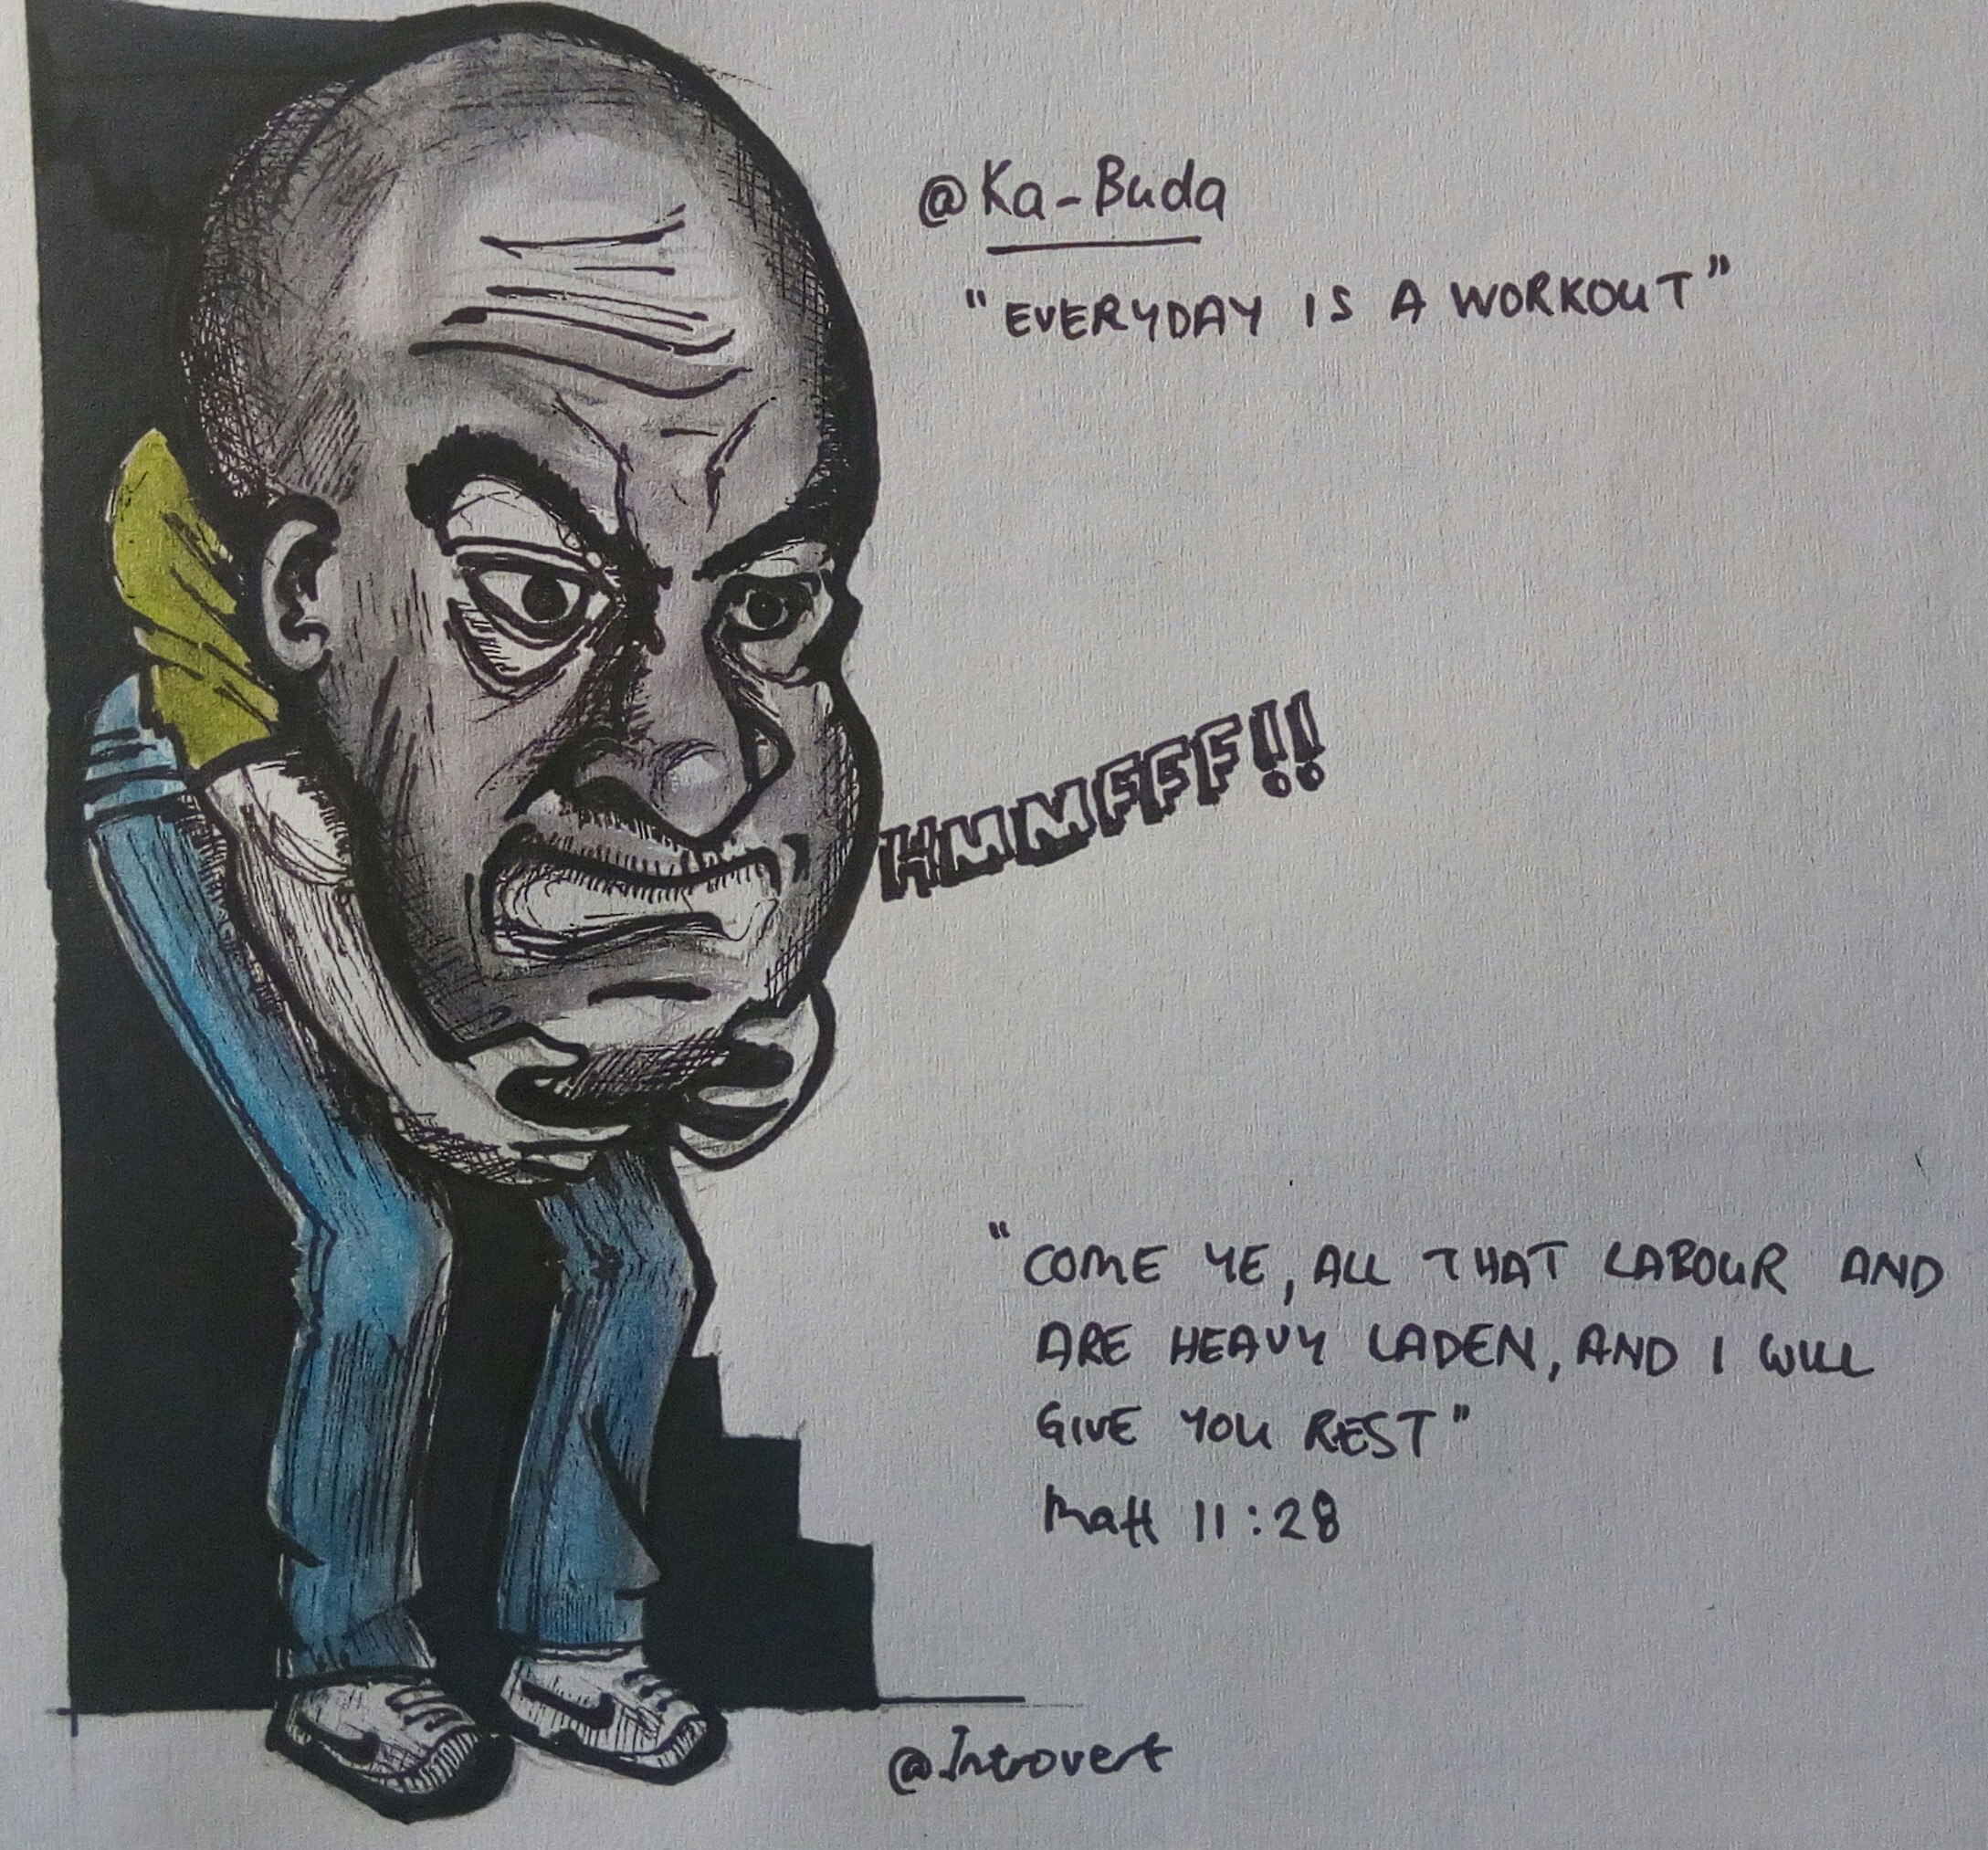 @Ka-Buda
"EVERYDAY IS A WORKOUT"
HMMFFF!!
"COME YE, ALL THAT LABOUR AND
ARE HEAVY LADEN, AND I WILL
GIVE YOU REST"
Matt 11:28
@Introvert